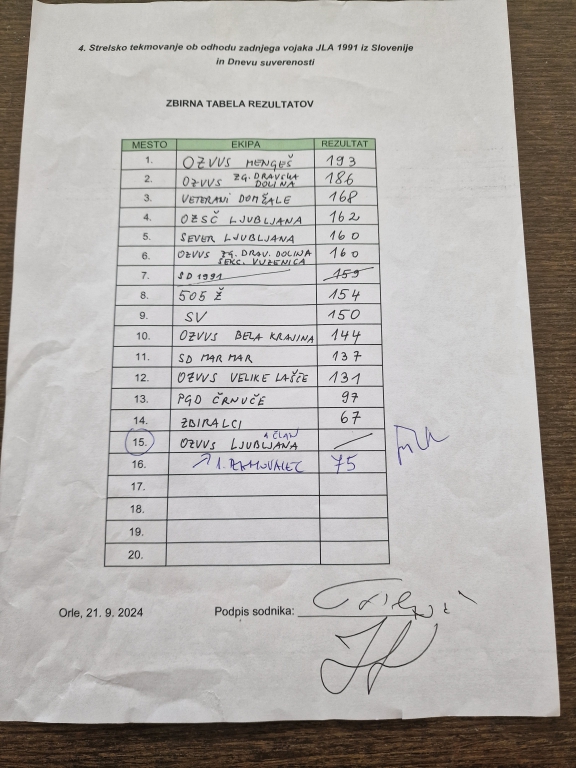 4. Strelsko tekmovanje ob odhodu zadnjega vojaka JLA 1991 iz Slovenije
in Dnevu suverenosti
ZBIRNA TABELA REZULTATOV
MESTO EKIPA REZULTAT
1. OZVVS MENGEŠ 193
2. OZVVS ZG. DRAVSKA DOLINA 186
3. VETERANI DOMŽALE 168
4. OZSČ LJUBLJANA 162
5. SEVER LJUBLJANA 160
6. OZVVS ZG. DRAV. DOLINA SEKC. VUZENICA 160
7. SD 1991 159
8. 505 Ž 154
9. SV 150
10. OZVVS BELA KRAJINA 144
11. SD MAR MAR 137
12. OZVVS VELIKE LAŠČE 131
13. PGD ČRNUČE 97
14. ZBIRALCI 67
15. OZVVS LJUBLJANA 1 ČLAN
16. 1. 75
17.
18.
19.
20.
Orle, 21. 9. 2024 Podpis sodnika: